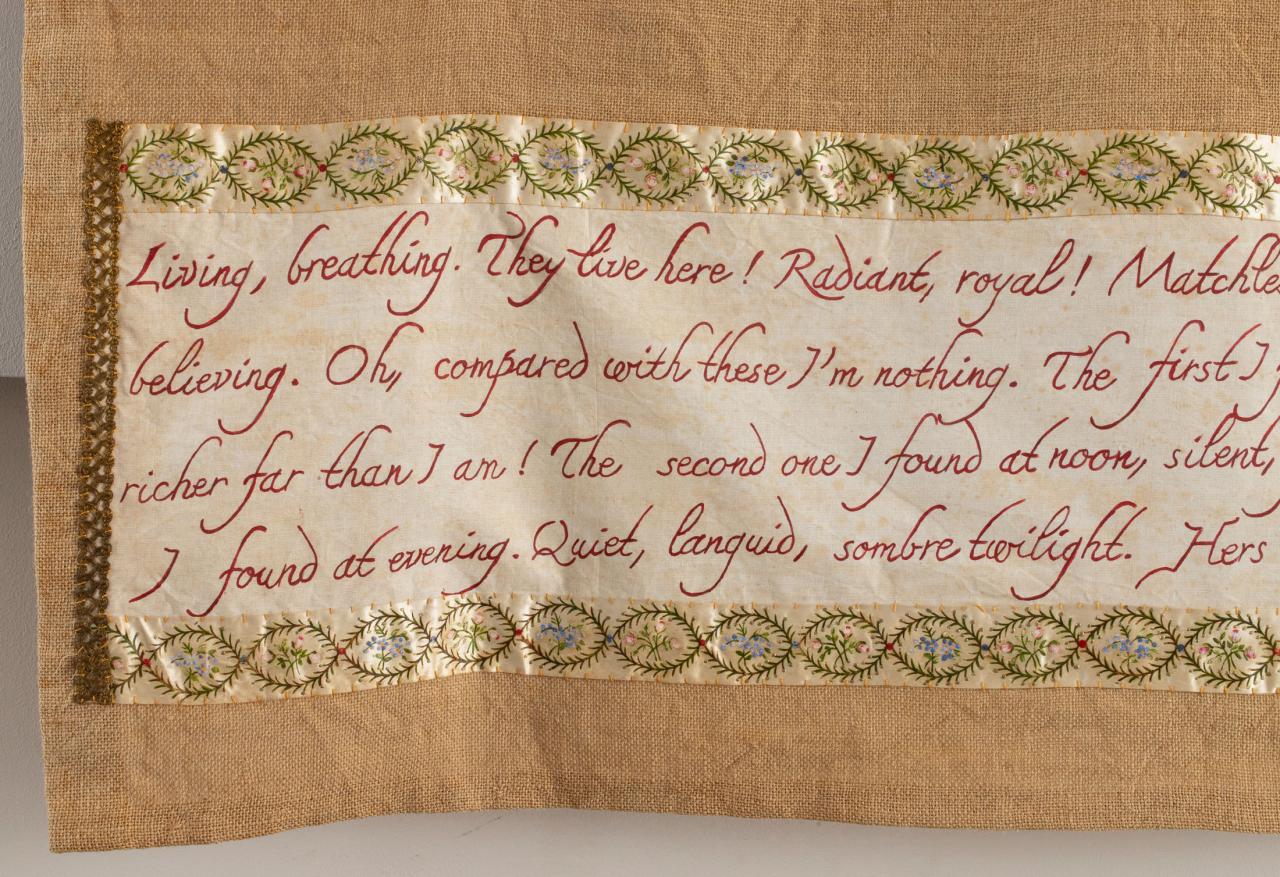 Living, breathing. They live here! Radiant, royal! Matchles
believing. Oh, compared with these I'm nothing. The first I f
richer far than I am! The second one I found at noon, silent,
I found at evening. Quiet, languid, sombre twilight. Hers